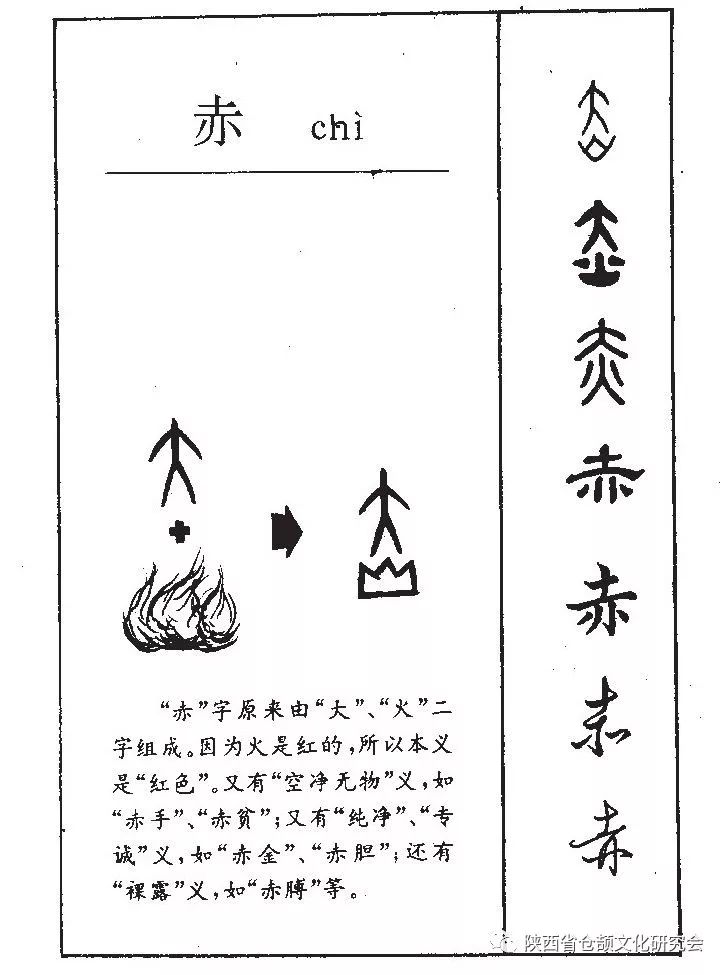 赤 chì
“赤”字原来由“大”、“火”二
字组成。因为火是红的，所以本义
是“红色”。又有“空净无物”义，如
“赤手”、“赤贫”；又有“纯净”、“专
诚”义，如“赤金”、“赤胆”；还有
“裸露”义，如“赤膊”等。
赤
赤
赤
赤
陕西省仓颉文化研究会